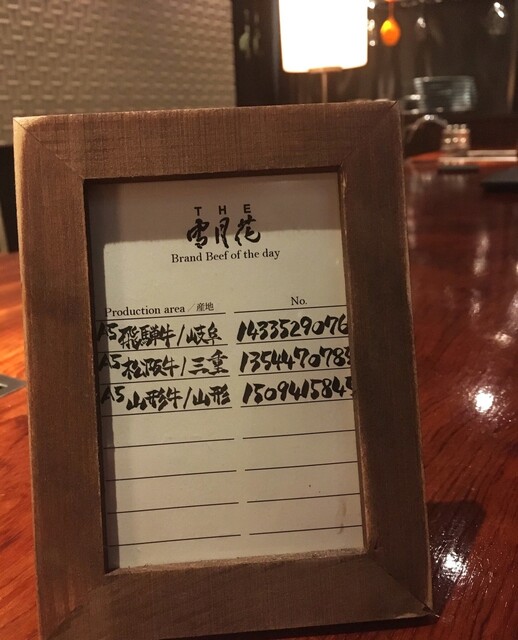 THE
雪月花
Brand Beef of the day
Production area／産地 No.
A5 飛騨牛/岐阜 1433529076
A5 松阪牛/三重 1354470783
A5 山形牛/山形 1509415845